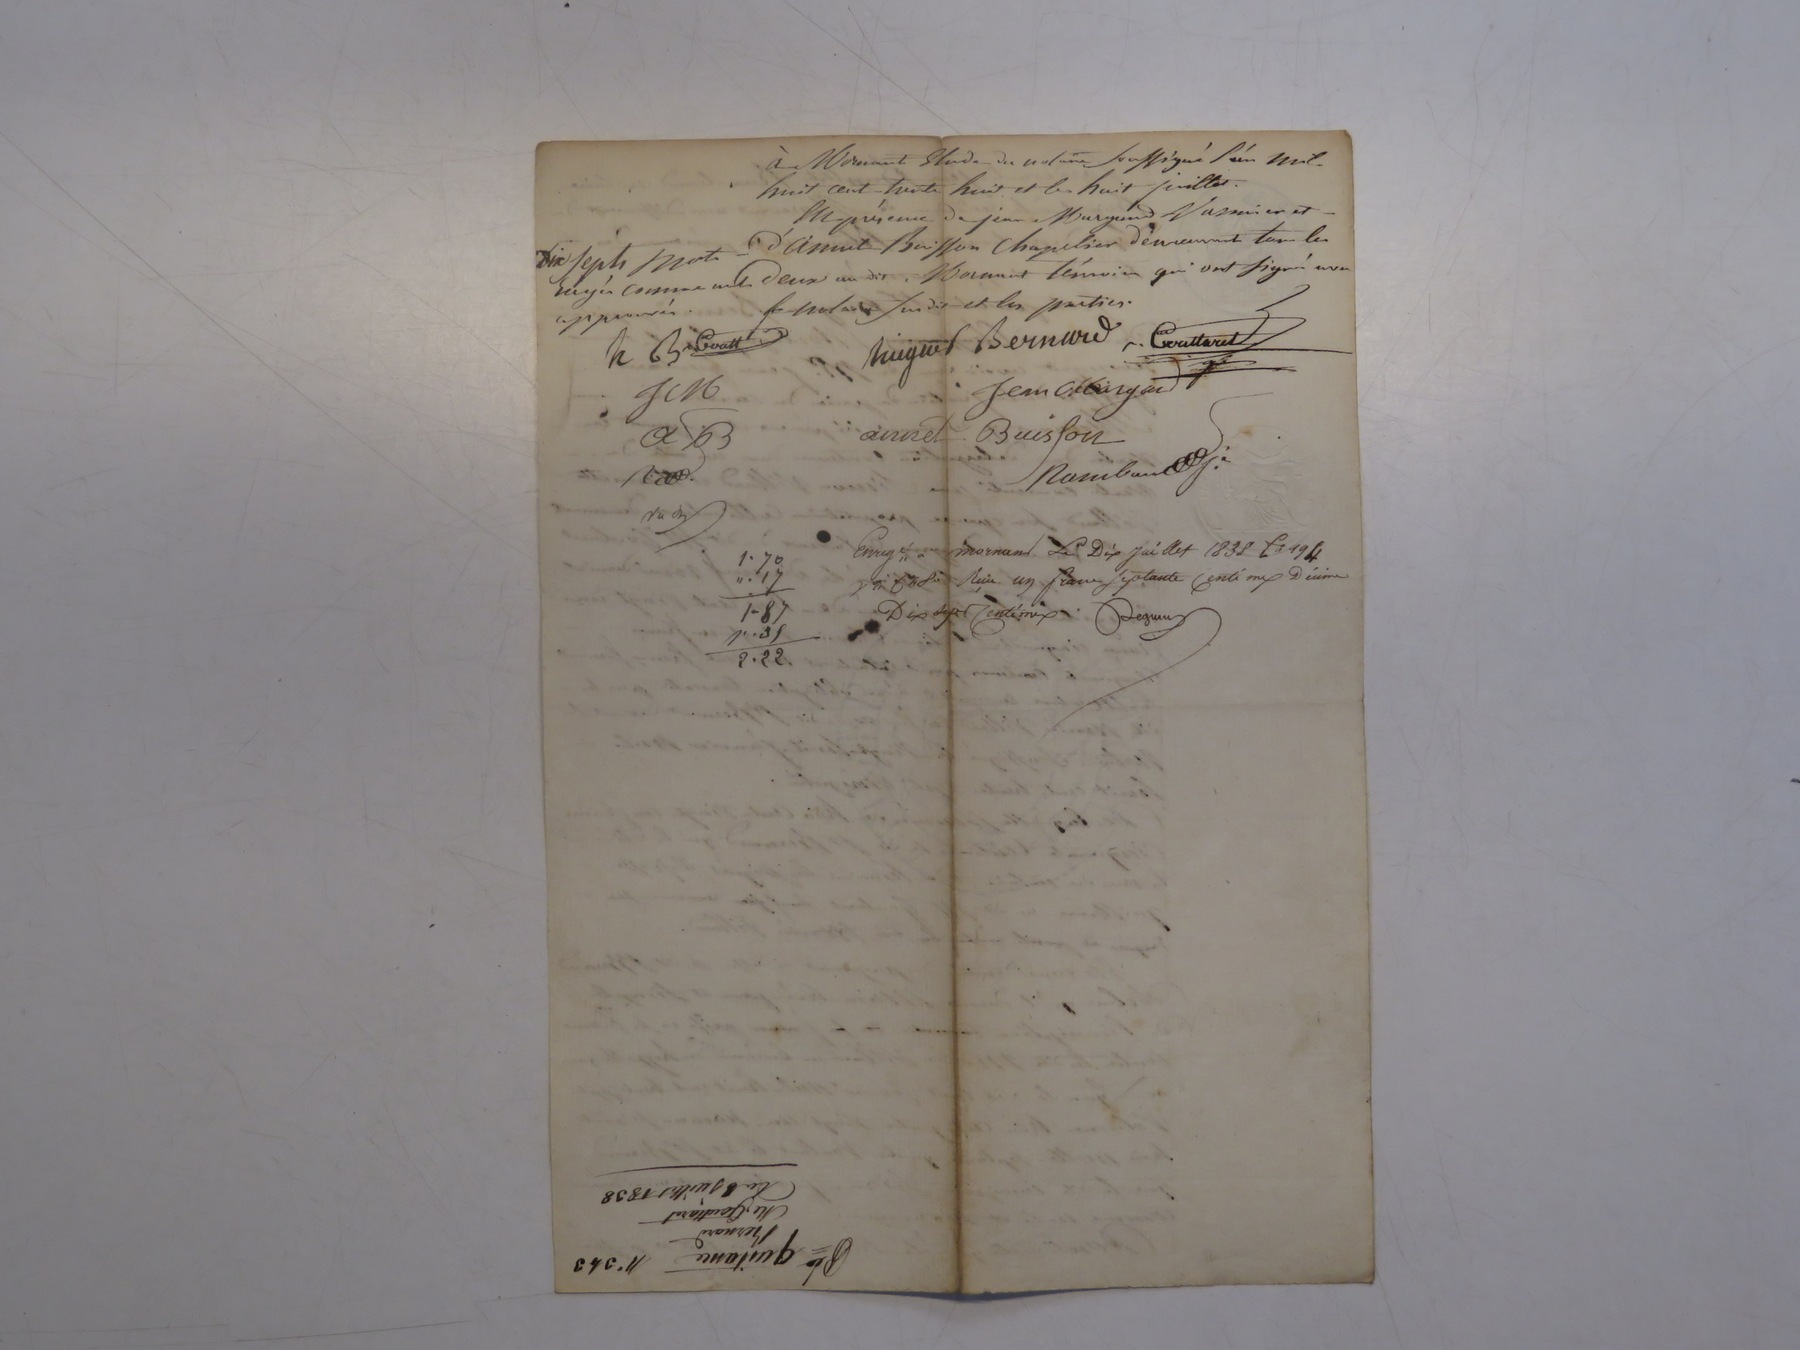 à Mornant Etude du notaire soussigné l'an mil
huit cent trente huit et le huit juillet.
En présence de jean Margand Vannier et
d'annet Buisson Chapelier demeurant tous les
deux au dit Mornant témoins qui ont signé avec
le notaire susdit et les parties.
Dix sept mots
rayés comme nuls
approuvés.
h B Goutt
hugues Bernard Gouttaret
JM
jean Margand
a B
annet Buisson
Rambaud
Enregé à mornant Le Dix juillet 1838 fo 194
Reçu un franc septante centimes Décime
Dix sept centimes.
1.70
".17
1.87
".35
2.22
Bte quitance N° 343
Bernard
Me Gouttaret
Du 8 juillet 1838